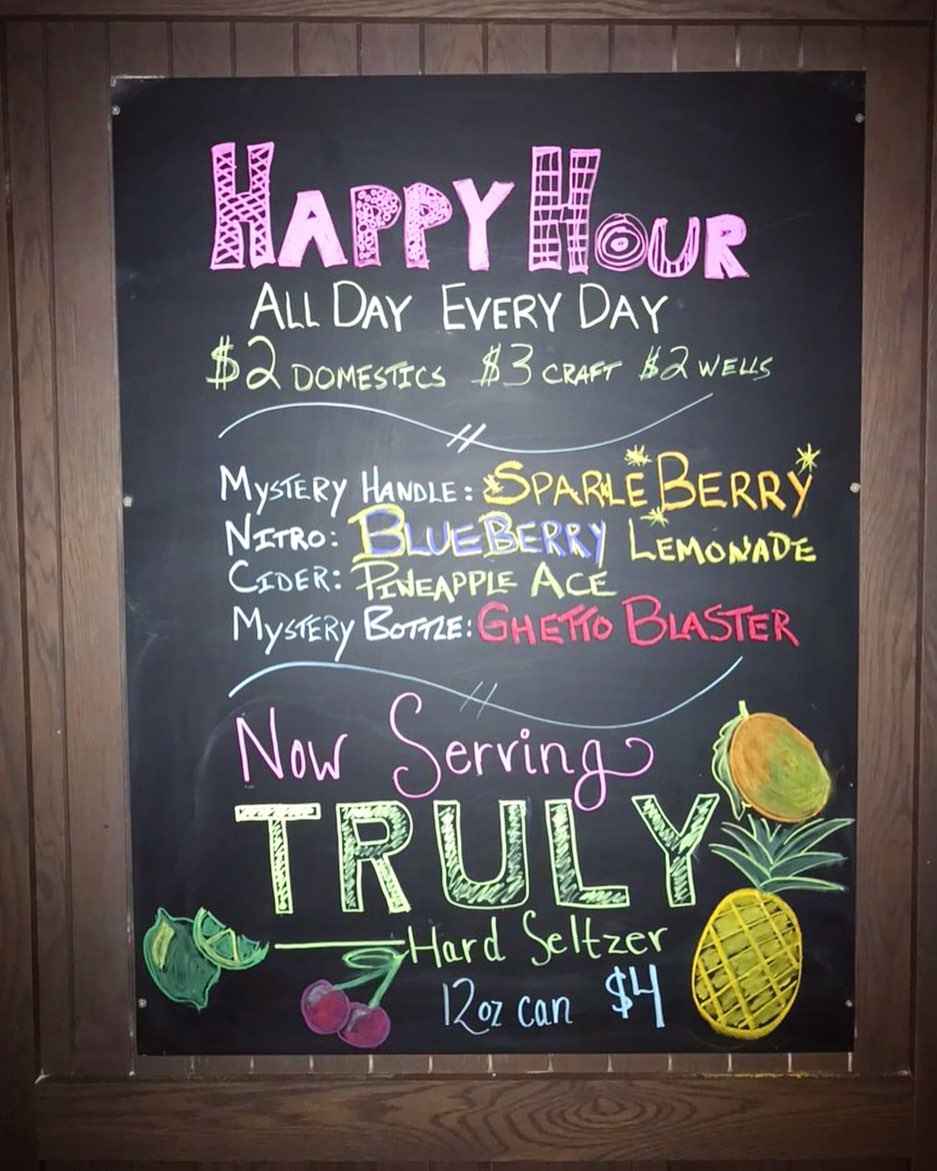 HAPPY HOUR
ALL DAY EVERY DAY
$2 DOMESTICS $3 CRAFT $2 WELLS
MYSTERY HANDLE: SPARKLE BERRY
NITRO: BLUEBERRY LEMONADE
CIDER: PINEAPPLE ACE
MYSTERY BOTTLE: GHETTO BLASTER
Now Serving
TRULY
Hard Seltzer
12oz can $4